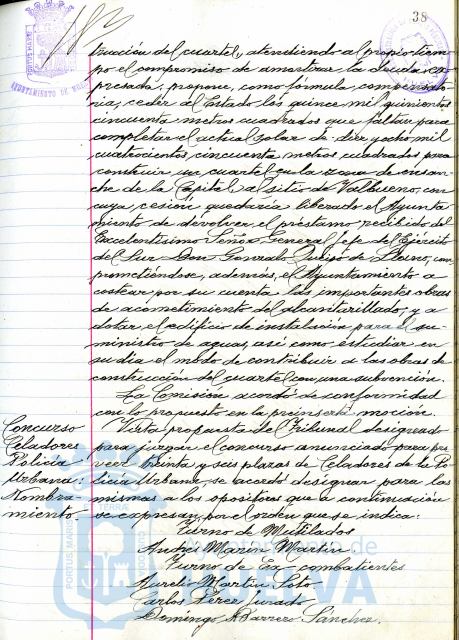 38
AYUNTAMIENTO DE HUELVA
trucción del cuartel, atendiendo al propio tiem-
po el compromiso de amortizar la deuda ex-
presada, propone, como fórmula compensato-
ria, ceder al Estado los quince mil quinientos
cincuenta metros cuadrados que faltan para
completar el actual solar de diez y ocho mil
cuatrocientos, cincuenta metros cuadrados para
construir un cuartel en la zona de ensan-
che de la Capital al sitio de Valbueno, con
cuya cesión quedaría liberado el Ayunta-
miento de devolver el préstamo recibido del
Excelentísimo Señor General Jefe del Ejército
del Sur Don Gonzalo Queipo de Llano, com-
prometiéndose, además, el Ayuntamiento a
costear por su cuenta las importantes obras
de acometimiento del alcantarillado, y a
dotar el edificio de instalación para el su-
ministro de aguas, así como estudiar en
su día el modo de contribuir a las obras de
construcción del cuartel con una subvención.
La Comisión acordó de conformidad
con lo propuesto en la preinserta moción.
Concurso
Celadores
Policía
Urbana:
Nombra-
miento
Vista propuesta de Tribunal designado
para juzgar el concurso anunciado para pro-
veer treinta y seis plazas de Celadores de la Po-
licía Urbana, se acordó designar para las
mismas a los opositores que a continuación
se expresan, por el orden que se indica:
Turno de Mutilados
Andrés Marín Martín
Turno de Ex-combatientes
Aurelio Martín Soto
Carlos Pérez Jurado
Domingo Barrero Sánchez.
Ayuntamiento de
HUELVA